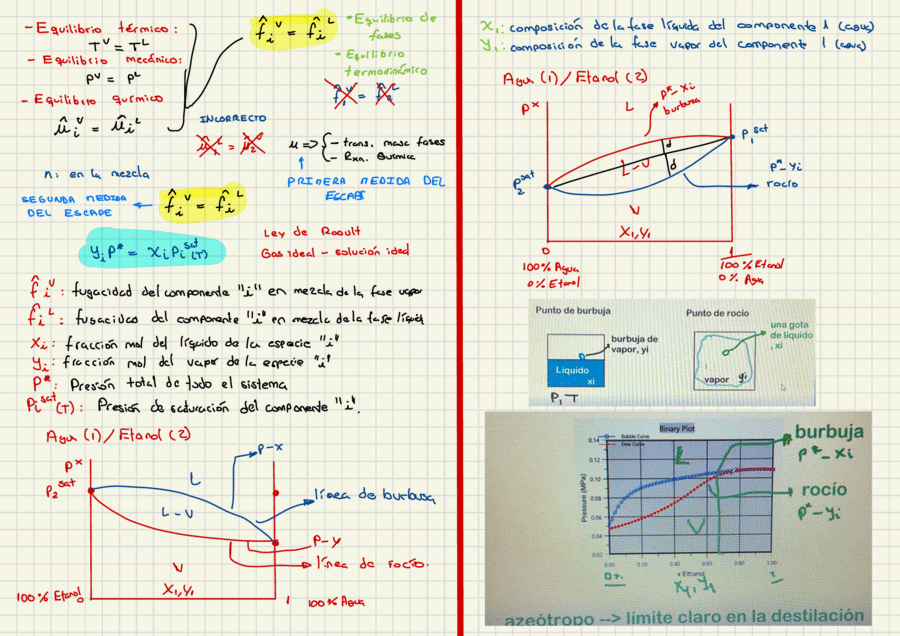 - Equilibrio térmico:
T^V = T^L
- Equilibrio mecánico:
P^V = P^L
- Equilibrio químico
μ̂_i^V = μ̂_i^L
f̂_i^V = f̂_i^L
• Equilibrio de
fases
- Equilibrio
termodinámico
f̂_1^V = f̂_2^L
INCORRECTO
μ_1^V = μ_2^L
μ => { - trans. masa fases
- Rxn. Química
PRIMERA MEDIDA DEL
ESCAPE
n: en la mezcla
SEGUNDA MEDIDA
DEL ESCAPE
f̂_i^V = f̂_i^L
y_i P* = x_i P_i^sat (T)
Ley de Raoult
Gas ideal - solución ideal
f̂_i^V: fugacidad del componente "i" en mezcla de la fase vapor
f̂_i^L: fugacidad del componente "i" en mezcla de la fase líquida
x_i: fracción mol del líquido de la especie "i"
y_i: fracción mol del vapor de la especie "i"
P*: Presión total de todo el sistema
P_i^sat (T): Presión de saturación del componente "i".
Agua (1) / Etanol (2)
P*
P_2^sat
L
L-V
V
P-x
línea de burbuja
P-y
línea de rocío.
X1,Y1
100% Etanol
1
100% Agua
X_1: composición de la fase líquida del componente 1 (agua)
Y_1: composición de la fase vapor del componente 1 (agua)
Agua (1) / Etanol (2)
P*
L
P*-xi
burbuja
P_1^sat
d
L-V
d
P*-yi
rocío
P_2^sat
V
X1,Y1
0
1
100% Agua
0% Etanol
100% Etanol
0% Agua
Punto de burbuja
Punto de rocío
burbuja de
vapor, yi
Líquido
xi
P, T
una gota
de líquido
, xi
vapor yi
Binary Plot
Bubble Curve
Dew Curve
0.14
0.12
0.10
0.08
0.06
0.04
0.02
Pressure (MPa)
0.00 0.20 0.40 0.60 0.80 1.00
x Ethanol
L
V
x1, y1
burbuja
P*-xi
rocío
P*-yi
azeótropo --> límite claro en la destilación